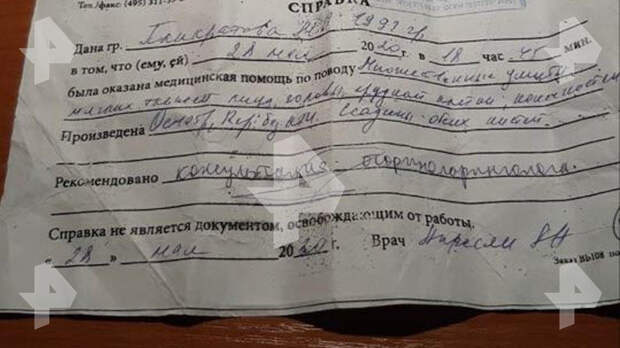 Тел./факс: (495) 311-
СПРАВКА
Дана гр. 1992 гр
в том, что (ему, ей) 28 мая 2020г. в 18 час 45 мин.
была оказана медицинская помощь по поводу Множественные ушибы
мягких тканей лица, головы, грудной клетки, конечностей
Произведена Осмотр, Ссадины обеих кистей.
Рекомендовано консультация оториноларинголога.
Справка не является документом, освобождающим от работы.
" 28 " мая 2020 г. Врач
Заказ ВЬ108